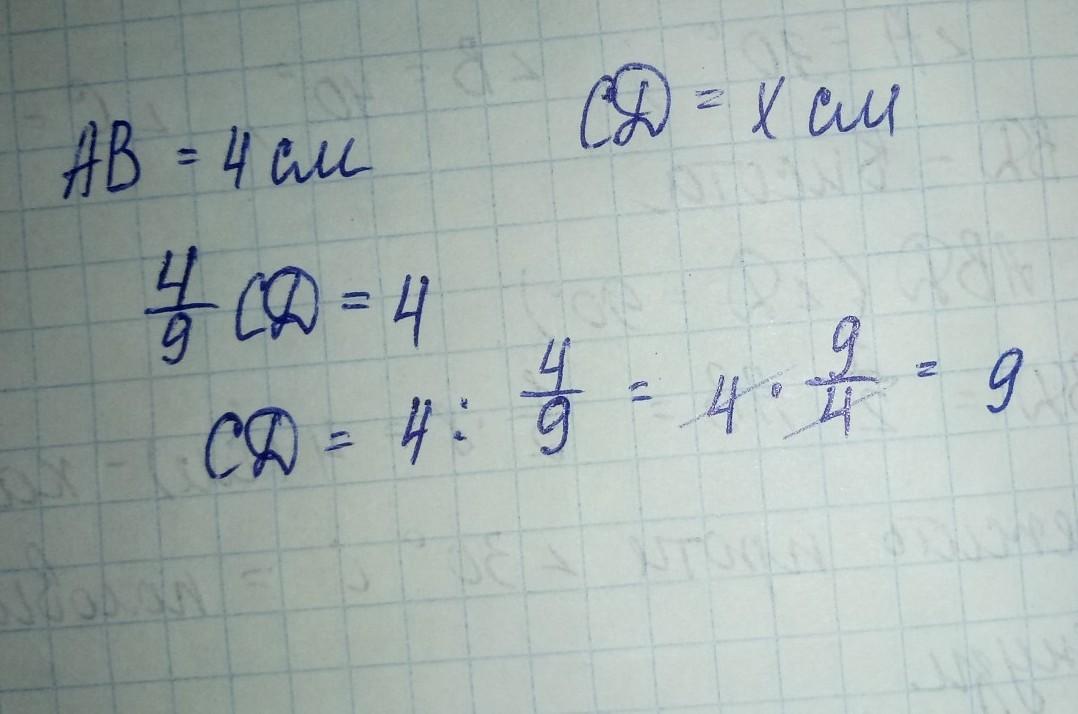 AB = 4 см
CD = x см
4/9 CD = 4
CD = 4 : 4/9 = 4 · 9/4 = 9